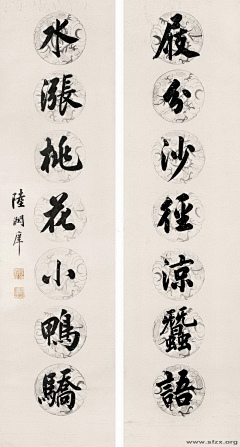 屐分沙徑涼蠶語
水漲桃花小鴨驕
陸潤庠
www.sfzx.org